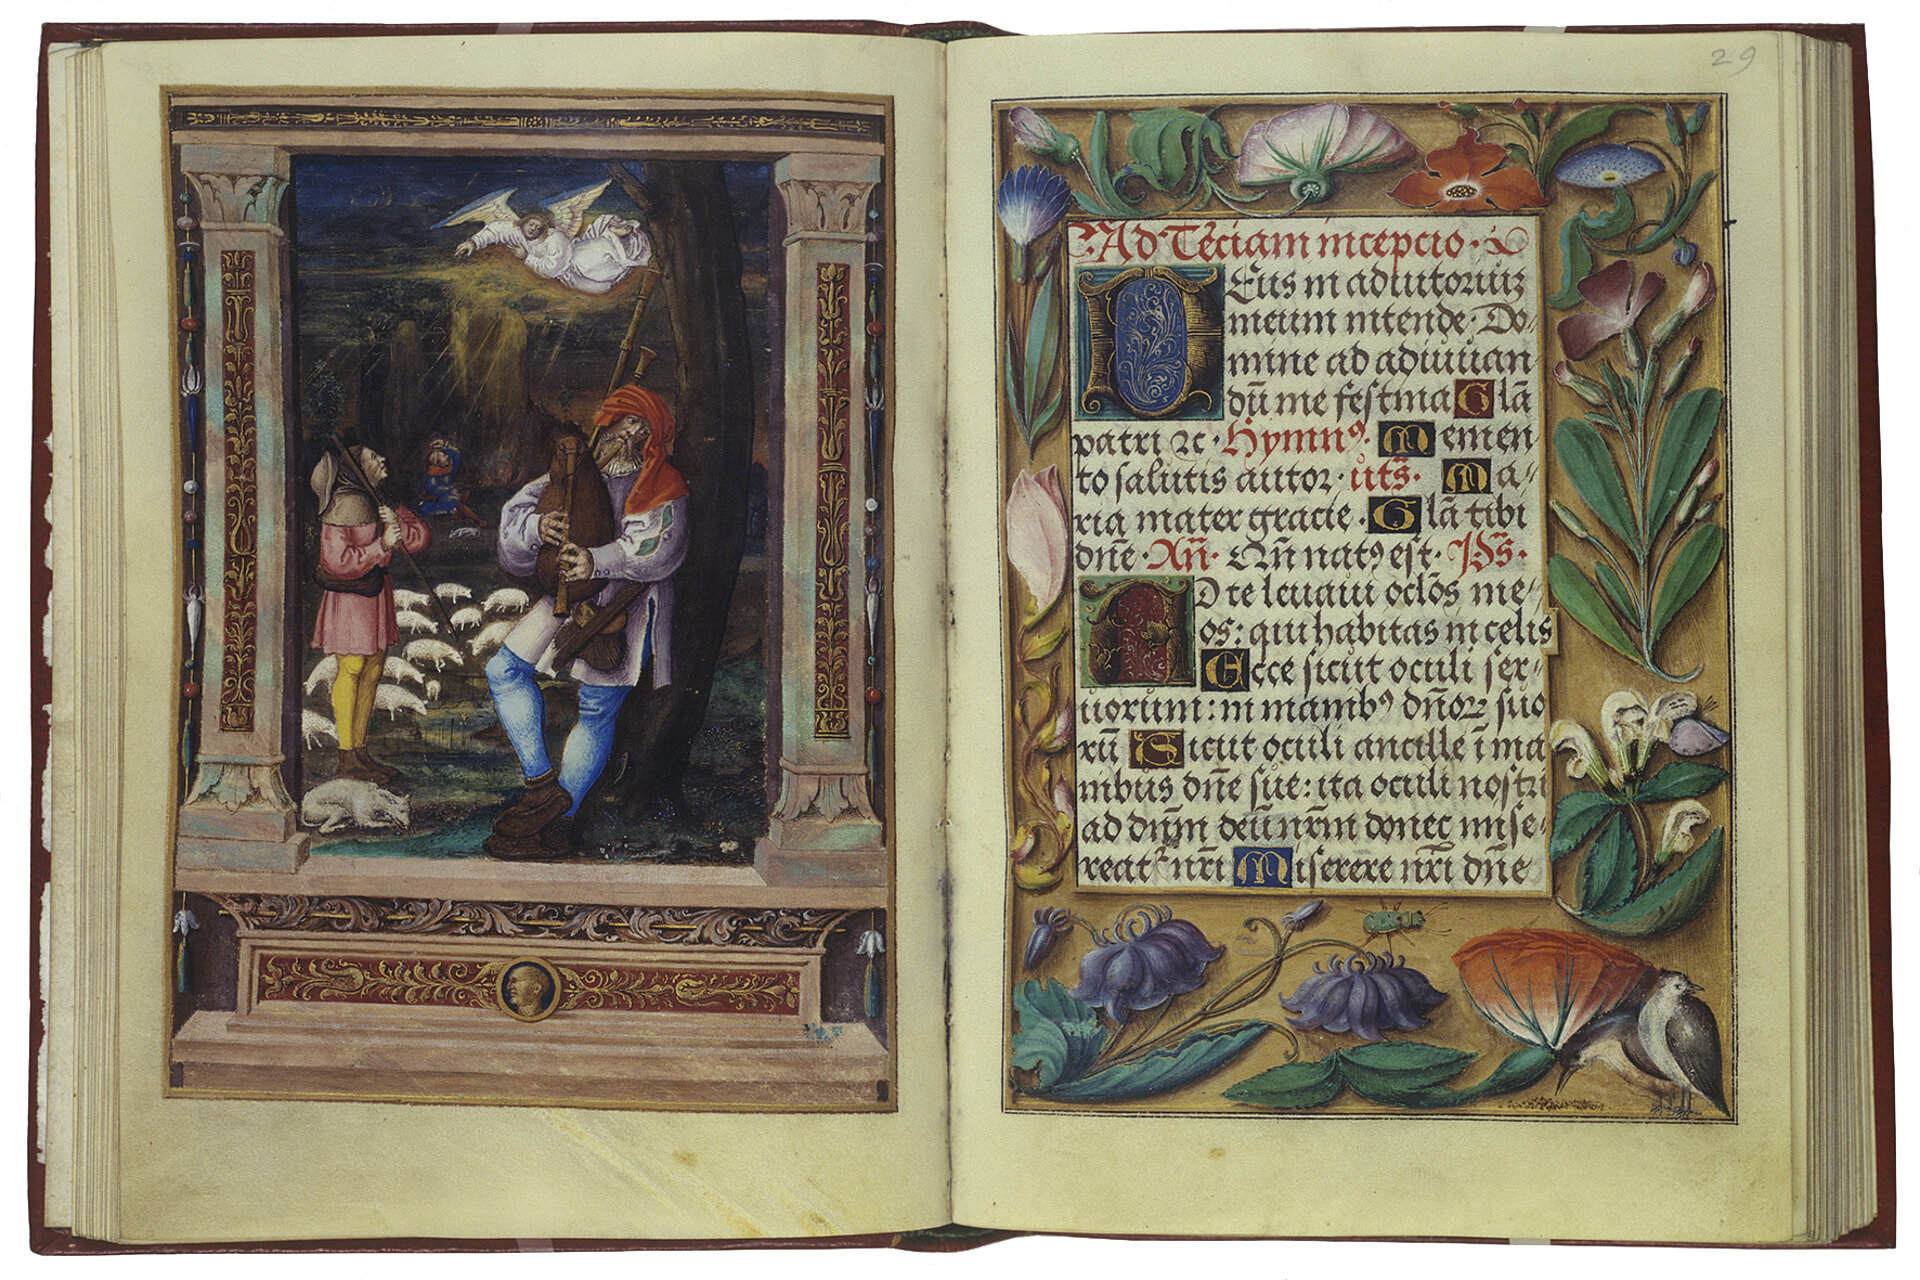 29
Ad Terciam incepcio.
Deus in adiutorium
meum intende. Do-
mine ad adiuuan
dū me festina Glā
patri ⁊c. Hymnꝰ. Memen-
to salutis autor. ut s̄. Ma-
ria mater gracie. Glā tibi
dn̄e. An̄. Qn̄ natꝰ est. Ps̄.
AD te leuaui oclōs me-
os: qui habitas in celis
Ecce sicut oculi ser-
uorum: in manibꝰ dn̄oꝝ suo
rū Sicut oculi ancille ī ma
nibus dn̄e sue: ita oculi nostri
ad dn̄m deū nr̄m donec mise-
reat᷑ nr̄i Miserere nr̄i dn̄e